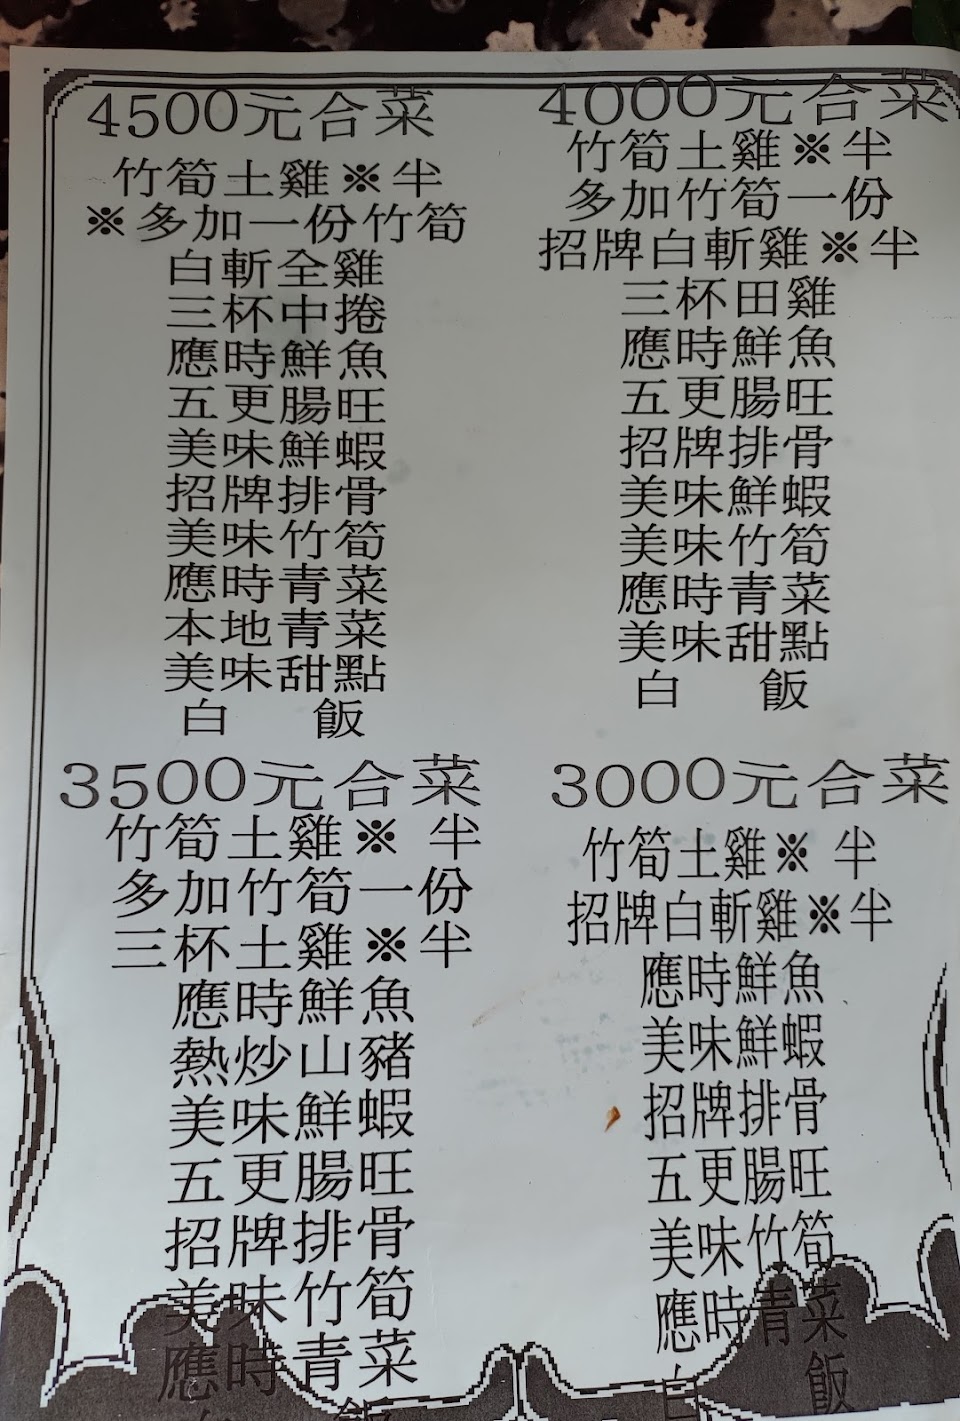 4500元合菜
竹筍土雞※半
※多加一份竹筍
白斬全雞
三杯中捲
應時鮮魚
五更腸旺
美味鮮蝦
招牌排骨
美味竹筍
應時青菜
本地青菜
美味甜點
白 飯
4000元合菜
竹筍土雞※半
多加竹筍一份
招牌白斬雞※半
三杯田雞
應時鮮魚
五更腸旺
招牌排骨
美味鮮蝦
美味竹筍
應時青菜
美味甜點
白 飯
3500元合菜
竹筍土雞※ 半
多加竹筍一份
三杯土雞※半
應時鮮魚
熱炒山豬
美味鮮蝦
五更腸旺
招牌排骨
美味竹筍
應時青菜
3000元合菜
竹筍土雞※ 半
招牌白斬雞※半
應時鮮魚
美味鮮蝦
招牌排骨
五更腸旺
美味竹筍
應時青菜
白 飯